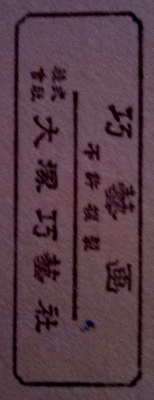 巧藝画
不許複製
株式會社
大塚巧藝社